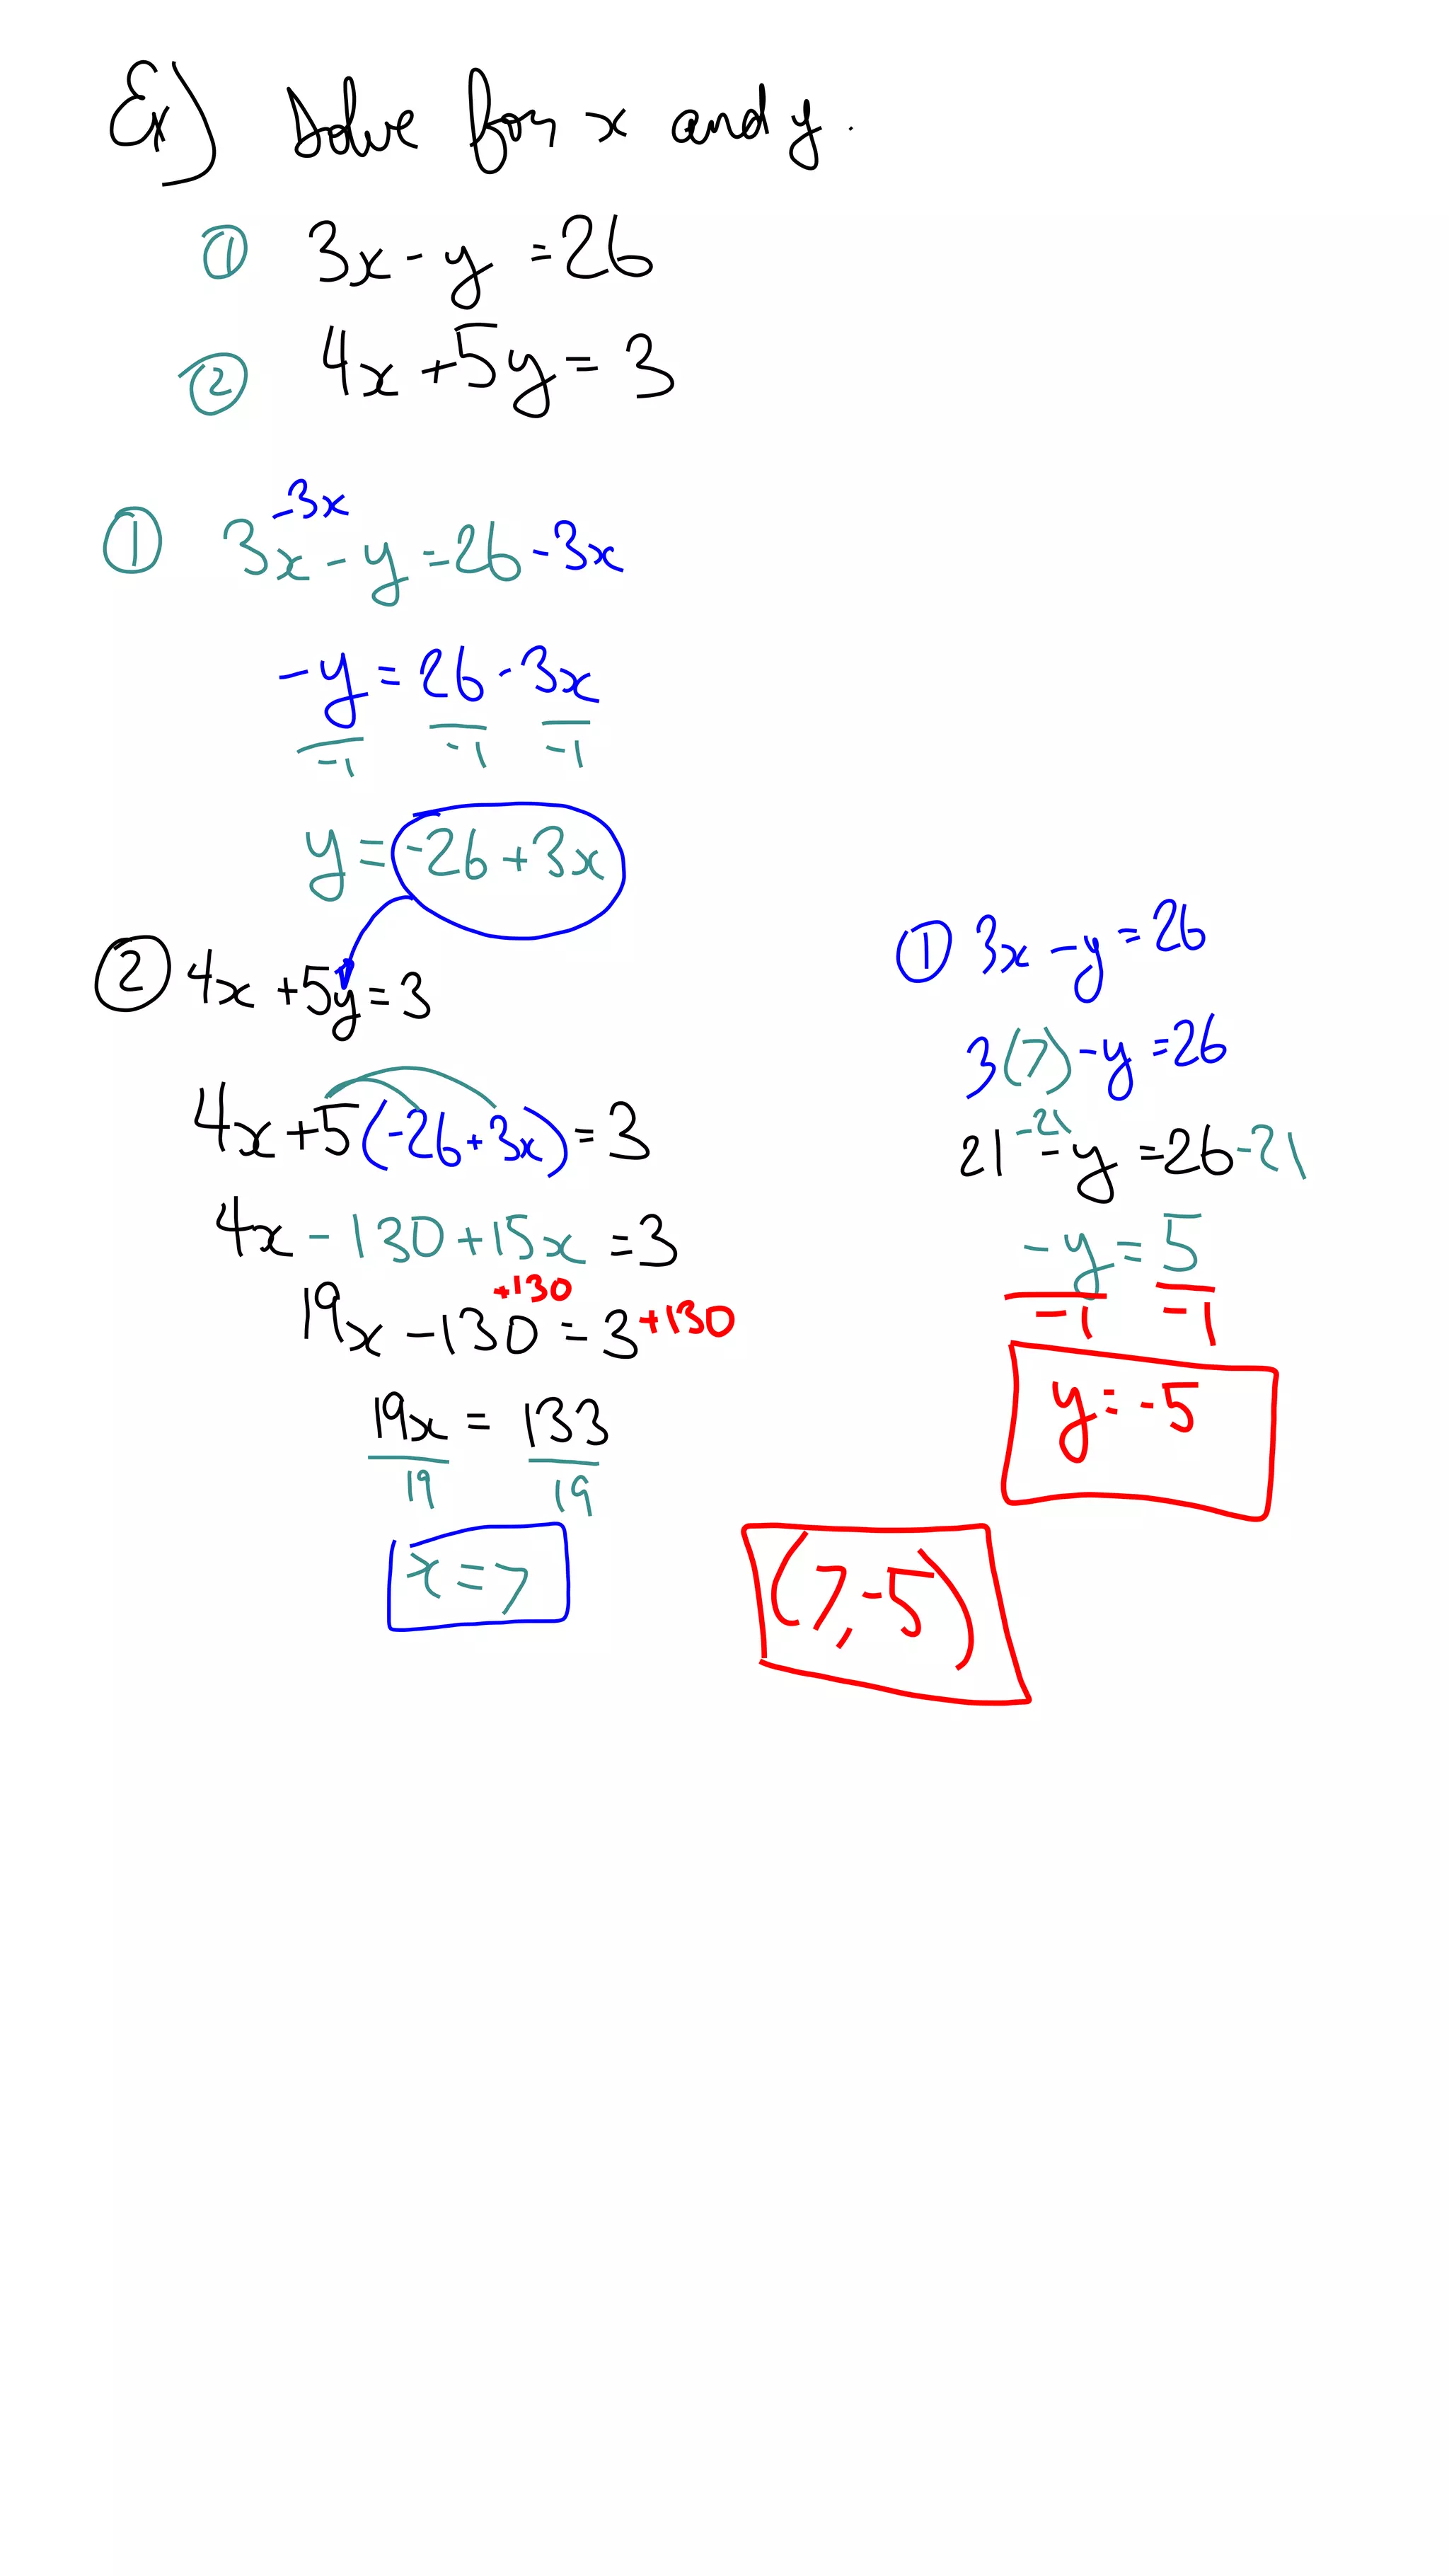 Ex) Solve for x and y.
① 3x - y = 26
② 4x + 5y = 3
① 3x -3x - y = 26 - 3x
-y = 26 - 3x
-1 -1 -1
y = -26 + 3x
② 4x + 5y = 3
4x + 5(-26 + 3x) = 3
4x - 130 + 15x = 3
19x - 130 +130 = 3 +130
19x = 133
19 19
x = 7
① 3x - y = 26
3(7) - y = 26
21 -21 - y = 26 - 21
-y = 5
-1 -1
y = -5
(7, -5)